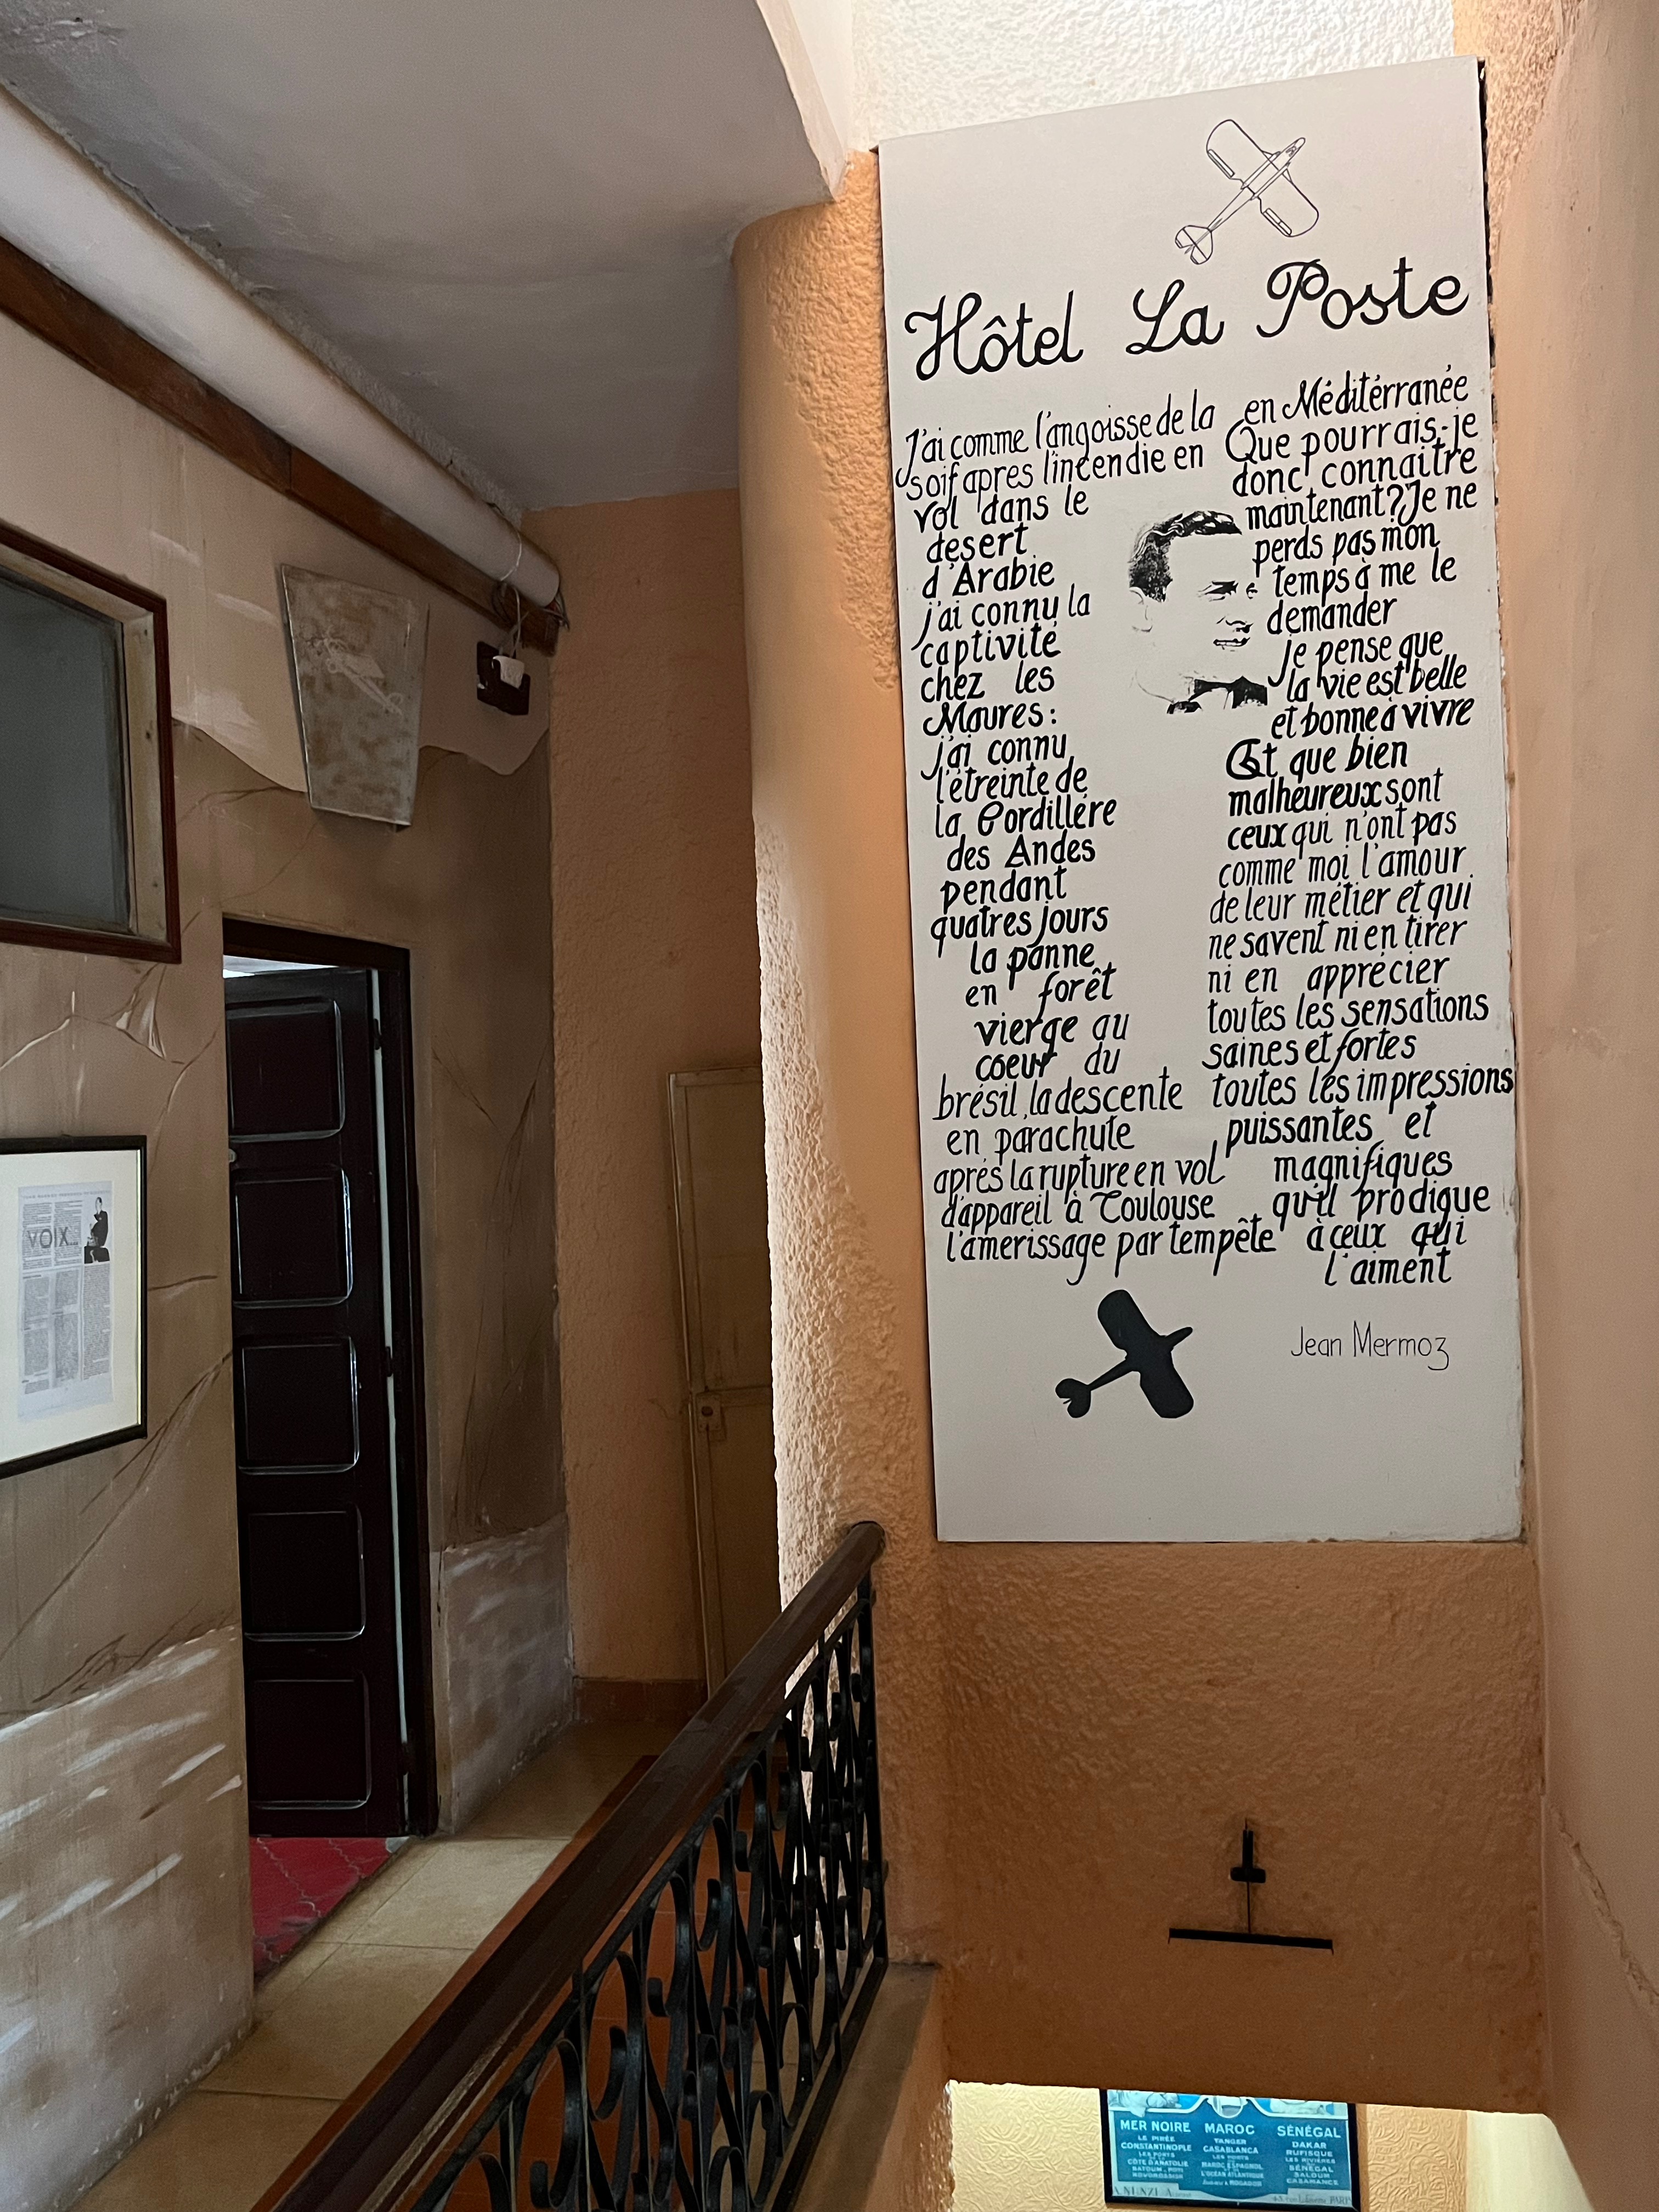 Hôtel La Poste
J'ai comme l'angoisse de la
soif apres l'incendie en
vol dans le
desert
d'Arabie
j'ai connu la
captivité
chez les
Maures:
j'ai connu
l'étreinte de
la Cordillère
des Andes
pendant
quatres jours
la panne
en forêt
vierge au
coeur du
brésil, la descente
en parachute
après la rupture en vol
d'appareil à Toulouse
l'amerissage par tempête
en Méditérranée
Que pourrais-je
donc connaitre
maintenant? Je ne
perds pas mon
temps à me le
demander
je pense que
la vie est belle
et bonne à vivre
Et que bien
malheureux sont
ceux qui n'ont pas
comme moi l'amour
de leur métier et qui
ne savent ni en tirer
ni en apprécier
toutes les sensations
saines et fortes
toutes les impressions
puissantes et
magnifiques
qu'il prodigue
à ceux qui
l'aiment
Jean Mermoz
VOIX...
MER NOIRE
LE PIRÉE
CONSTANTINOPLE
LES PORTS
CÔTE D'ANATOLIE
MAROC
TANGER
CASABLANCA
LES PORTS
MAROC ESPAGNOL
L'OCÉAN ATLANTIQUE
SÉNÉGAL
DAKAR
RUFISQUE
SÉNÉGAL
SALOUM
CASAMANCE